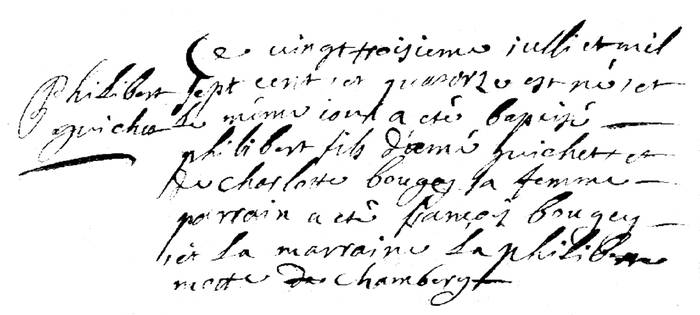 Philibert
guichet
Le vingt troisieme juilliet mil
sept cent et quatorze est né et
Le méme jour a eté baptisé
philibert fils d'aimé guichet et
de Charlotte bougey sa femme
parrain a eté françois bougey
et La marraine La philiberte
motte de Chambery